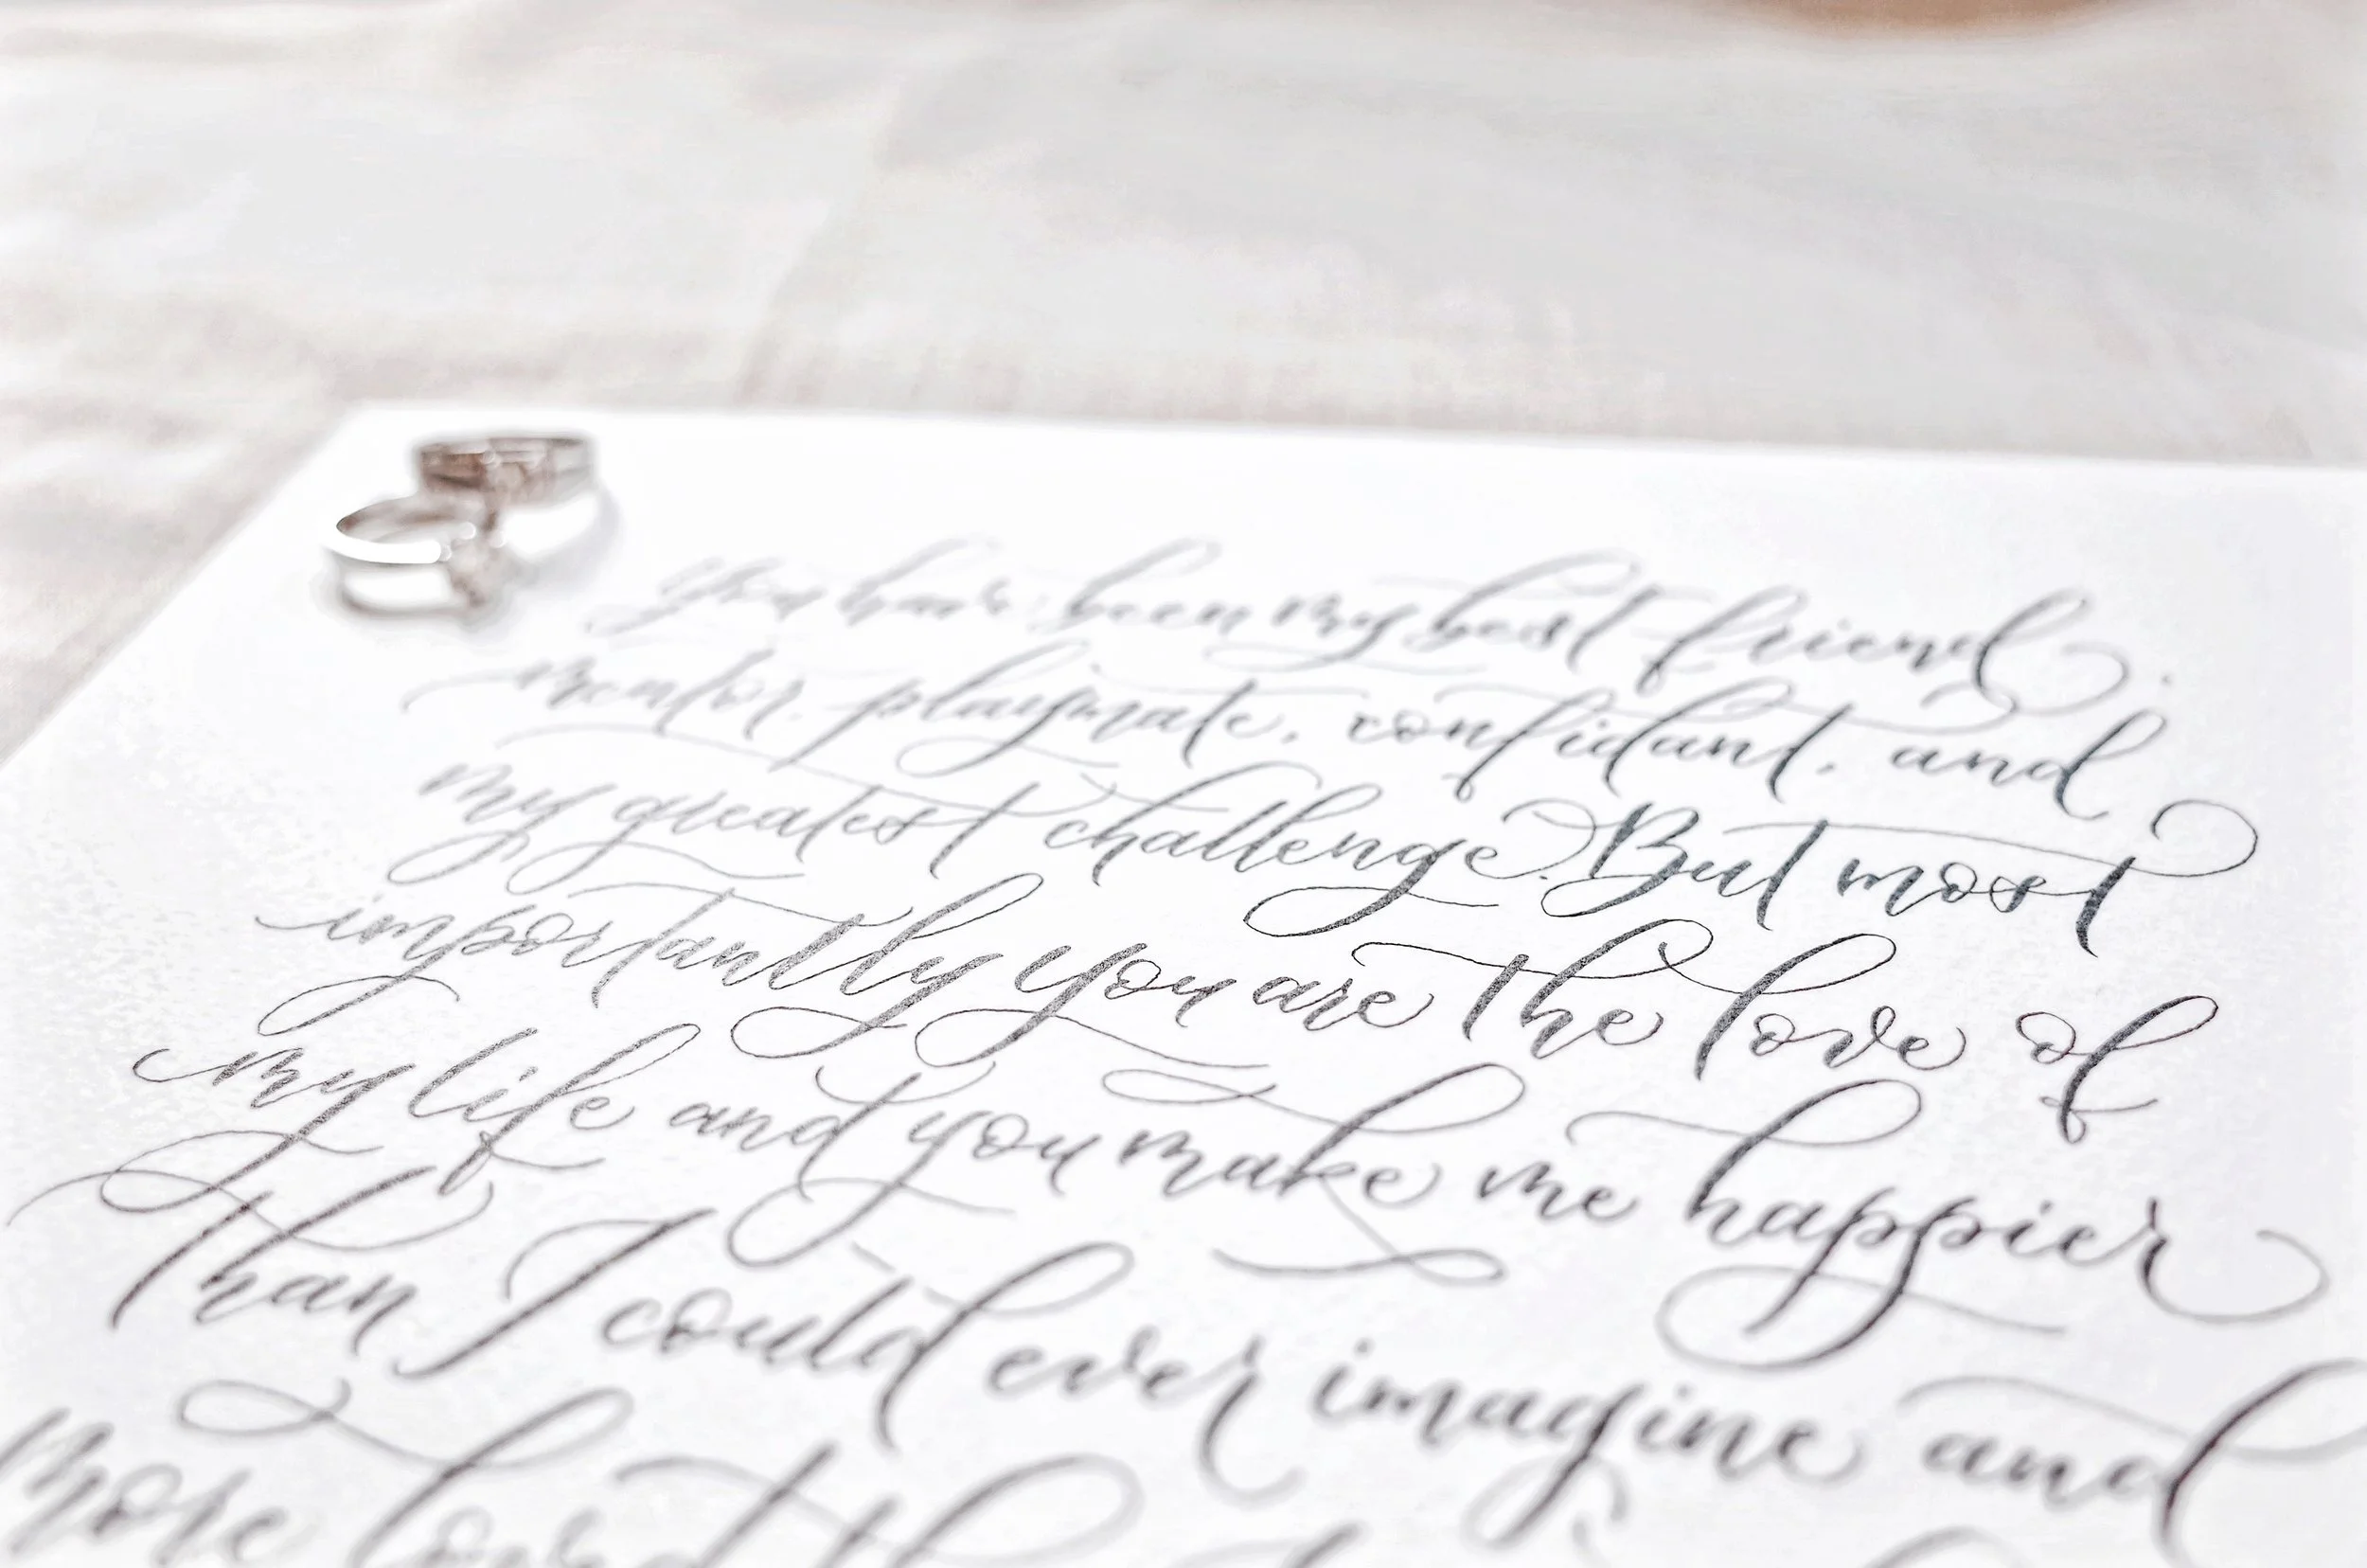 you have been my best friend,
mentor, playmate, confidant, and
my greatest challenge. But most
importantly you are the love of
my life and you make me happier
than I could ever imagine and
more loved